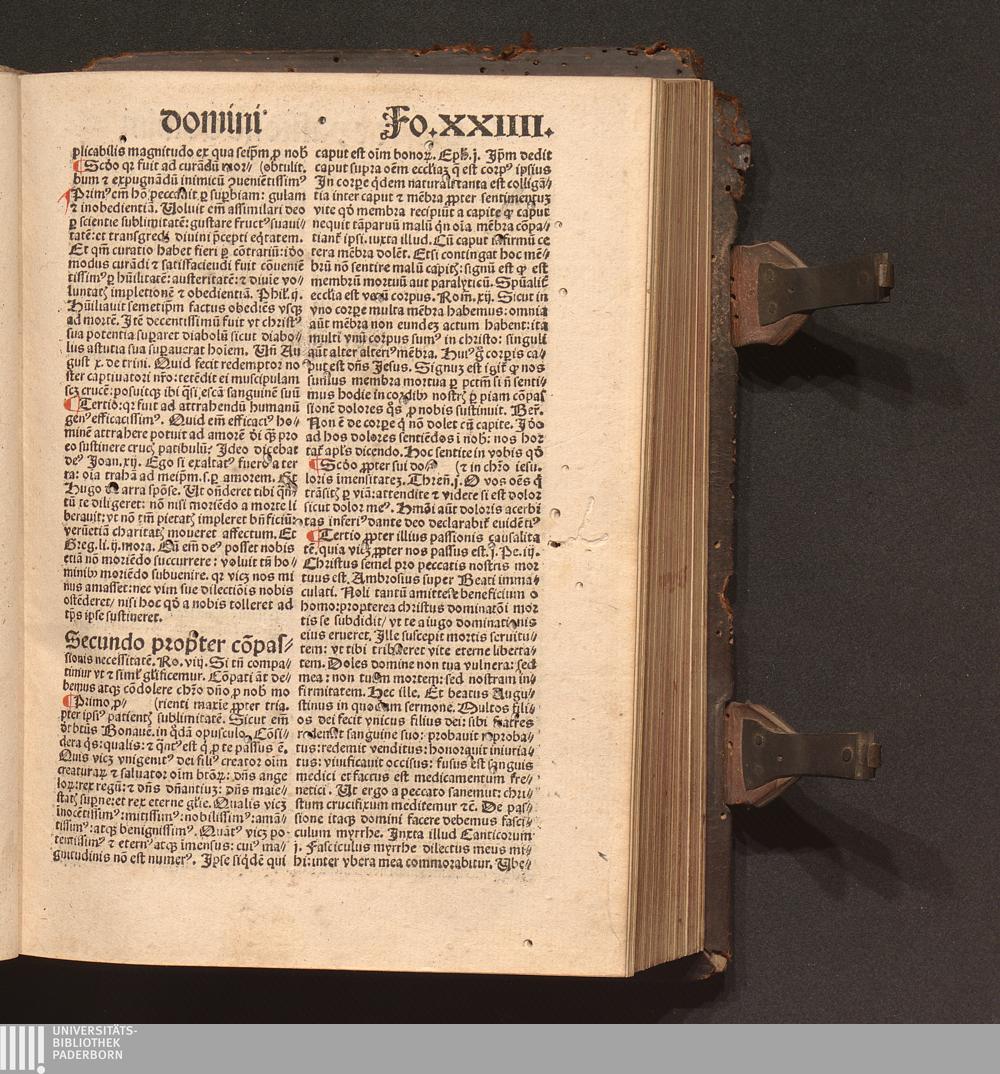 domini
Fo.XXIIII.
plicabilis magnitudo ex qua seip̄m ꝓ nob
¶ Scďo qꝛ fuit ad curādū moꝛ⸗ (obtulit.
bum ⁊ expugnandū inimicū ꝯueniētissimꝰ
Primꝰ em̄ hō peccauit ꝑ suꝑbiam: gulam
⁊ inobedientiā. Uoluit em̄ assimilari deo
ꝑ scientie sublimitatē: gustare fructꝰ suaui⸗
tatē: et transgredi diuini p̄cepti eq̄tatem.
Et qm̄ curatio habet fieri ꝑ cōtrariū: iďo
modus curādi ⁊ satisfaciendi fuit cōueniē
tissimꝰ ꝑ hūilitatē: austeritatē: ⁊ diuie vo⸗
luntatꝭ impletionē ⁊ obedientiā. Phil. ij.
Hūiliauit semetip̄m factus obediēs vsqꝫ
ad mortē. Itē decentissimū fuit vt christꝰ
sua potentia suꝑaret diabolū sicut diabo⸗
lus astutia sua suꝑauerat hoīem. Un̄ Au
gust x. de trini. Quid fecit redemptor no
ster captiuatori nr̄o: tetēdit ei muscipulam
scꝫ crucē: posuitqꝫ ibi q̄si escā sanguinē suū
¶ Tertio: qꝛ fuit ad attrahendū humanū
genꝰ efficacissimꝰ. Quid em̄ efficacꝰ ho⸗
minē attrahere potuit ad amorē dī qꝫ pro
eo sustinere crucꝭ patibulū: Ideo dicebat
deꝰ Joan. xij. Ego si exaltatꝰ fuero a ter
ra: oīa trahā ad meip̄m. s. ꝑ amorem. Et
Hugo de arra spōse. Ut on̄deret tibi q̄n
tū te diligeret: nō nisi moriēdo a morte li
berauit: vt nō tm̄ pietatꝭ impleret bn̄ficiū:
verūetiā charitatꝭ moueret affectum. Et
Greg. li. ij. mora. Qm̄ em̄ deꝰ posset nobis
etiā nō moriēdo succurrere: voluit tn̄ ho⸗
minibꝰ moriēdo subuenire. qꝛ vicꝫ nos mi
nus amasset: nec vim sue dilectiōis nobis
ostēderet/ nisi hoc qď a nobis tolleret ad
tp̄s ipse sustineret.
Secundo prop̄ter cōpas⸗
sionis necessitatē. Ro. viij. Si tn̄ compa⸗
timur vt ⁊ simꝉ gl̄ificemur. Cōpati āt de⸗
bemus atqꝫ cōdolere chr̄o dn̄o ꝓ nob mo
¶ Primo ꝓ⸗ (rienti maxie ꝓpter tria.
pter ipsiꝰ patientꝭ sublimitatē. Sicut em̄
dt btūs Bonauē. in q̄dā opusculo. Cōsi⸗
dera q̄s: qualis: ⁊ q̄ntꝰ est q̄ ꝓ te passus ē.
Quis vicꝫ vnigenitꝰ dei filiꝰ creator oīm
creaturaꝝ ⁊ saluator oīm btōꝝ: dn̄s ange
loꝝ: rex regū: ⁊ dn̄s dn̄antiuꝫ: dn̄s maie⸗
statꝭ suꝑne: et rex eterne gl̄ie. Qualis vicꝫ
inocētissimꝰ: mitissimꝰ: nobilissimꝰ: amā⸗
tissimꝰ: atqꝫ benignissimꝰ. Quātꝰ vicꝫ po⸗
tentissimꝰ ⁊ eternꝰ atqꝫ imensus: cuiꝰ ma⸗
gnitudinis nō est numerꝰ. Ipse siq̄dē qui
caput est oīm honoꝝ. Eph̄. j. Ip̄m dedit
caput supra oēm eccl̄iaꝫ q̄ est corpꝰ ipsius
In corꝑe q̄dem naturali tanta est colligā⸗
tia inter caput ⁊ mēbra ꝓpter sentimentuꝫ
vite qď membra recipiūt a capite ꝙ caput
nequit tāparuū malū qn̄ oīa mēbra cōpa⸗
tiant᷑ ipsi. iuxta illud. Cū caput infirmū ce
tera mēbra dolēt. Etsi contingat hoc mē⸗
brū nō sentire malū capitꝭ: signū est ꝙ est
membrū mortuū aut paralyticū. Spūaliẗ
eccl̄ia est vnū corpus. Rom. xij. Sicut in
vno corꝑe multa mēbra habemus: omnia
aūt mēbra non eundeꝫ actum habent: ita
multi vnū corpus sumꝰ in christo: singuli
aūt alter alteriꝰ mēbra. Huiꝰ ḡ corꝑis ca⸗
put est dn̄s Jesus. Signuꝫ est igit᷑ ꝙ nos
sumus membra mortua ꝑ pctm̄ si n̄ senti⸗
mus hodie in cordibꝰ nostrꝭ ꝑ piam cōpas
sionē dolores q̄s ꝓ nobis sustinuit. Ber̄.
Non ē de corꝑe q̄ nō dolet cū capite. Iďo
ad hos dolores sentiēdos ī nob: nos hor
tat᷑ apl̄s dicendo. Hoc sentite in vobis qď
¶ Scďo ꝓpter sui do⸗ (⁊ in chr̄o iesu.
loris imensitateꝫ. Thren̄. j. O vos oēs q̄
trāsitꝭ ꝑ viā: attendite ⁊ videte si est dolor
sicut dolor meꝰ. Hmōi aūt doloris acerbi
tas inferiꝰ dante deo declarabit᷑ euidētiꝰ
¶ Tertio ꝓpter illius passionis causalita
tē. quia vicꝫ ꝓpter nos passus est. j. Pe. iij.
Christus semel pro peccatis nostris mor
tuus est. Ambrosius super Beati imma⸗
culati. Noli tantū amittere beneficium o
homo: propterea christus dominatōi mor
tis se subdidit/ vt te a iugo dominatiōnis
eius erueret. Ille suscepit mortis seruitu⸗
tem: vt tibi tribueret vite eterne liberta⸗
tem. Doles domine non tua vulnera: sed
mea: non tuam mortem: sed nostram in⸗
firmitatem. Hec ille. Et beatus Augu⸗
stinus in quodam sermone. Multos fili⸗
os dei fecit vnicus filius dei: sibi fratres
redemit sanguine suo: probauit reproba⸗
tus: redemit venditus: honorauit iniuria⸗
tus: viuificauit occisus: fusus est sanguis
medici et factus est medicamentum fre⸗
netici. Ut ergo a peccato sanemur: chri⸗
stum crucifixum meditemur ⁊c. De pas⸗
sione itaqꝫ domini facere debemus fasci⸗
culum myrrhe. Iuxta illud Canticorum
j. Fasciculus myrrhe dilectus meus mi⸗
hi: inter vbera mea commorabitur. Ube⸗
UNIVERSITÄTS-
BIBLIOTHEK
PADERBORN